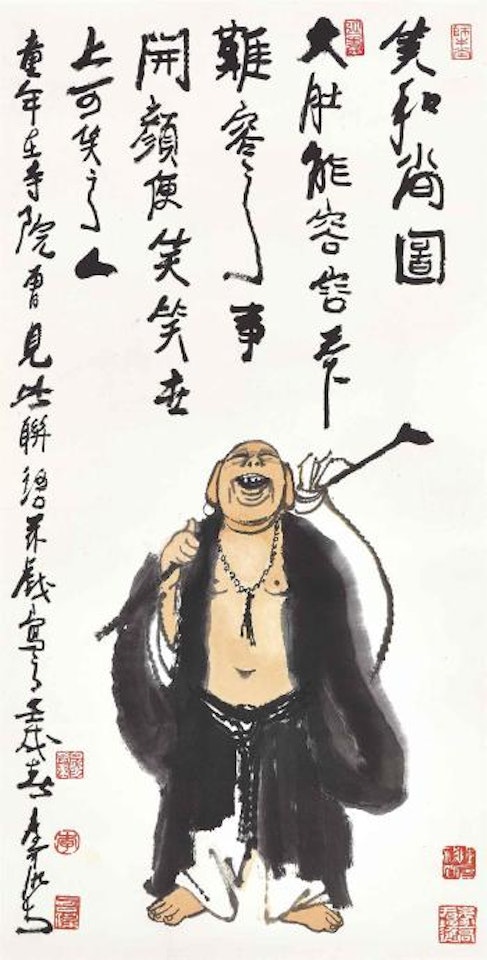 笑和尚圖
大肚能容容天下
難容之事
開顏便笑笑世
上可笑之人
童年在寺院曾見此聯語戲寫之壬戌春李